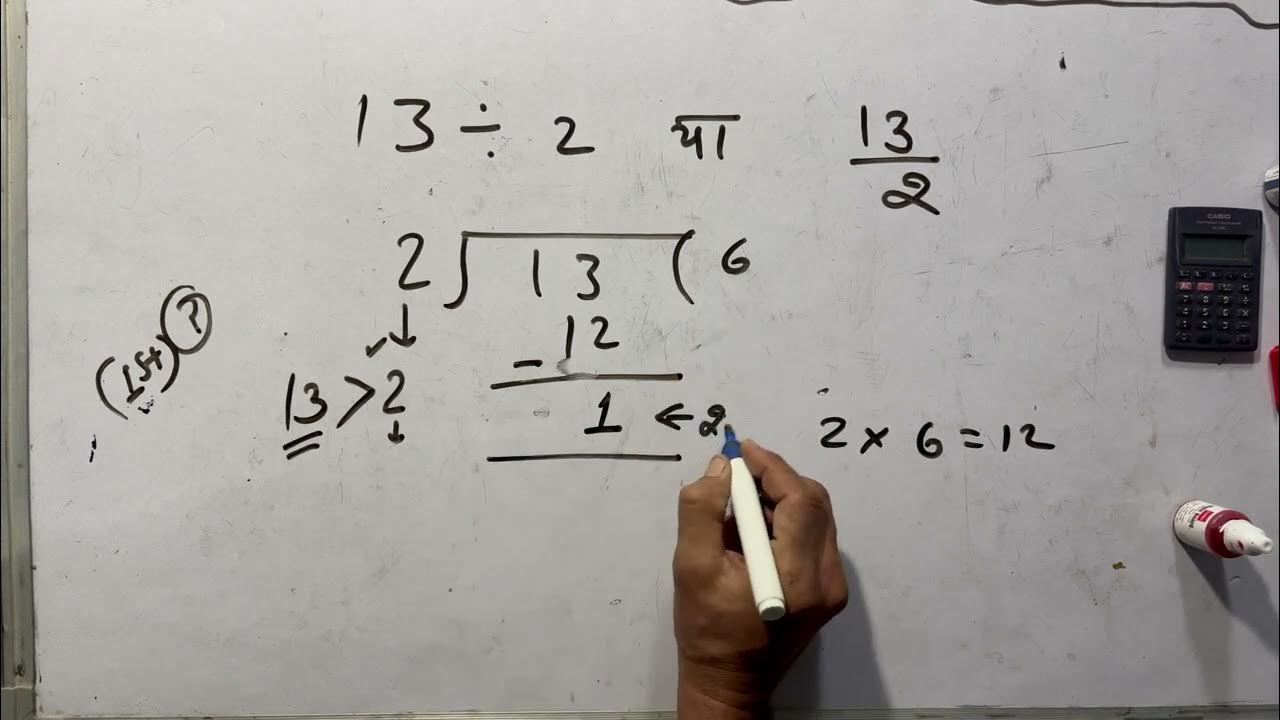 13 ÷ 2 या 13/2
2 ) 13 ( 6
- 12
1 ← 2
13 > 2
(1st) ?
2 × 6 = 12
CASIO